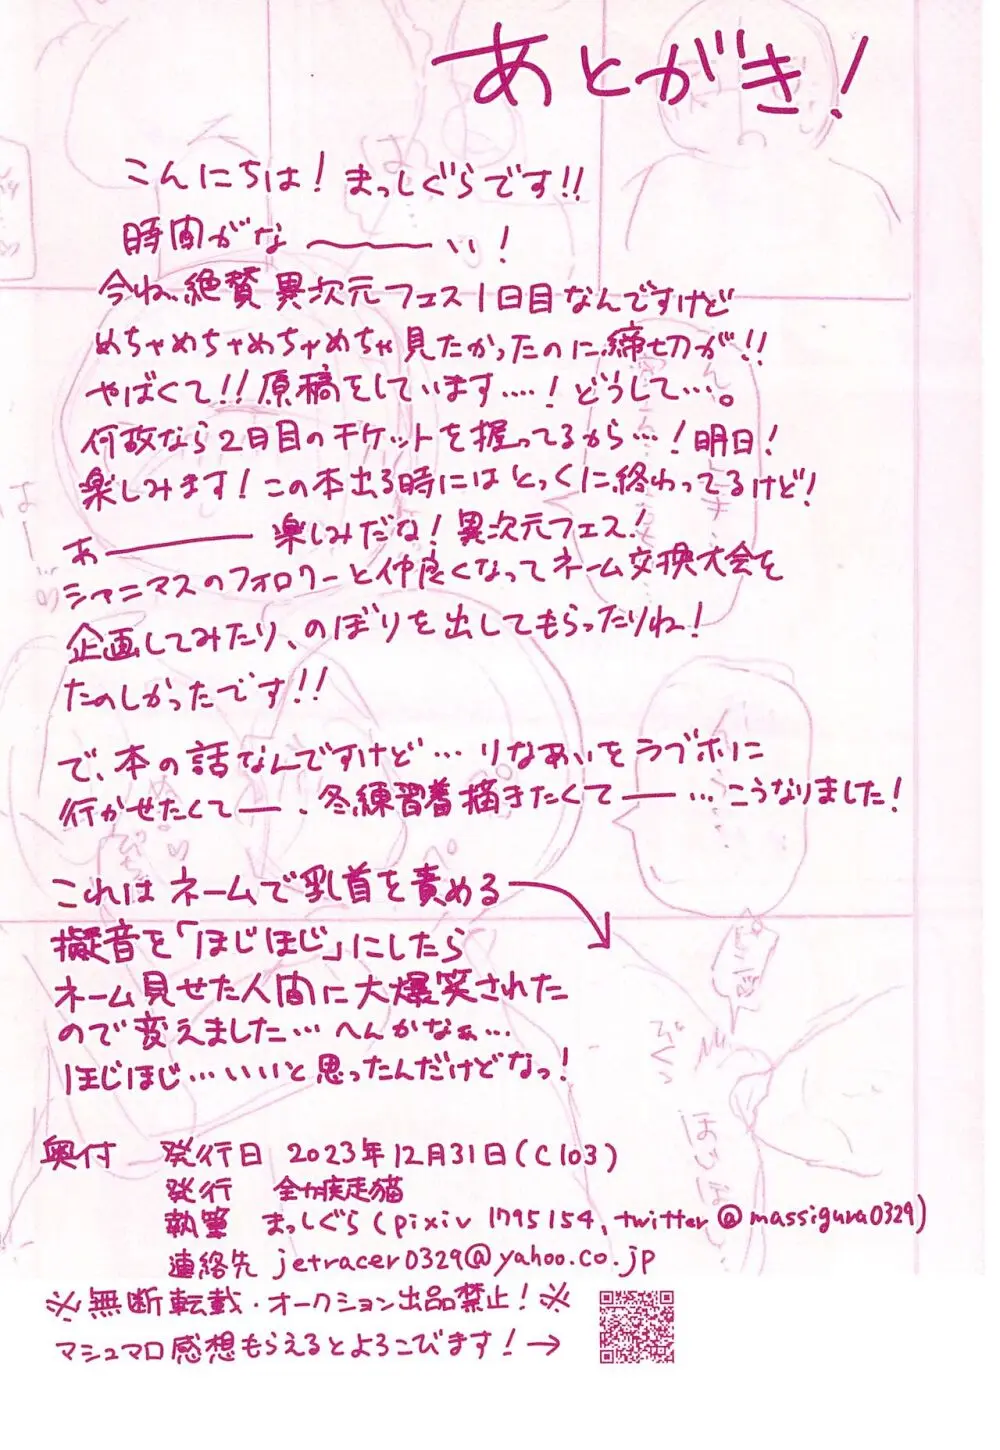 あとがき!
こんにちは! まっしぐらです!!
時間がな――い!
今ね、絶賛異次元フェス1日目なんですけど
めちゃめちゃめちゃめちゃ見たかったのに締切が!!
やばくて!!原稿をしています....!どうして...。
何故なら2日目のチケットを握ってるから...!明日!
楽しみます!この本出る時にはとっくに終わってるけど!
あ――― 楽しみだな!異次元フェス!
シャニマスのフォロワーと仲良くなってネーム交換大会を
企画してみたり、のぼりを出してもらったりね!
たのしかったです!!
で、本の話なんですけど... りなあいをラブホに
行かせたくてー、冬練習着描きたくてー...こうなりました!
これはネームで乳首を責める
擬音を「ほじほじ」にしたら
ネーム見せた人間に大爆笑された
ので変えました... へんかなぁ...
ほじほじ...いいと思ったんだけどなっ!
びくっ
奥付 発行日 2023年12月31日(C103)
発行 全力疾走猫
執筆 まっしぐら(pixiv 1795154, twitter@massigura0329)
連絡先 jetracer0329@yahoo.co.jp
※無断転載・オークション出品禁止!※
マシュマロ感想もらえるとよろこびます!→